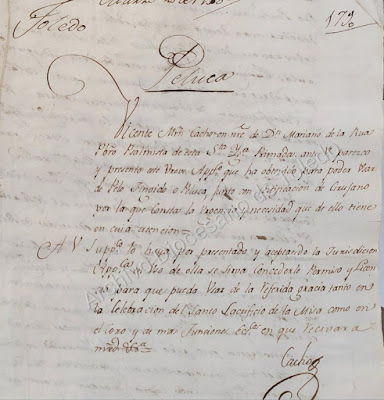 Toledo
Peluca
Vicente Mrn Cacho en nre de Dn Mariano de la Rua
Pbro Psalmista de esta Sta Yga Primada, ante V. parezco
y presento este Breve Appco que ha obtenido para poder Usar
de Pelo fingido o Peluca, junto con certificacion de Cirujano
por la que consta la urgencia y necesidad que de ello tiene
en cuia atencion
A V. Suppco lo haya por presentado y aceptando la Jurisdicion
Appca Uso de ella se sirva concederle Permiso y Licen
cia para que pueda Usar de la referida gracia tanto en
la Celebracion del Santo Sacrificio de la Misa como en
el Coro y demas Funciones Ecas en que recivira
mrd
Cacho
Archivo Diocesano de Toledo